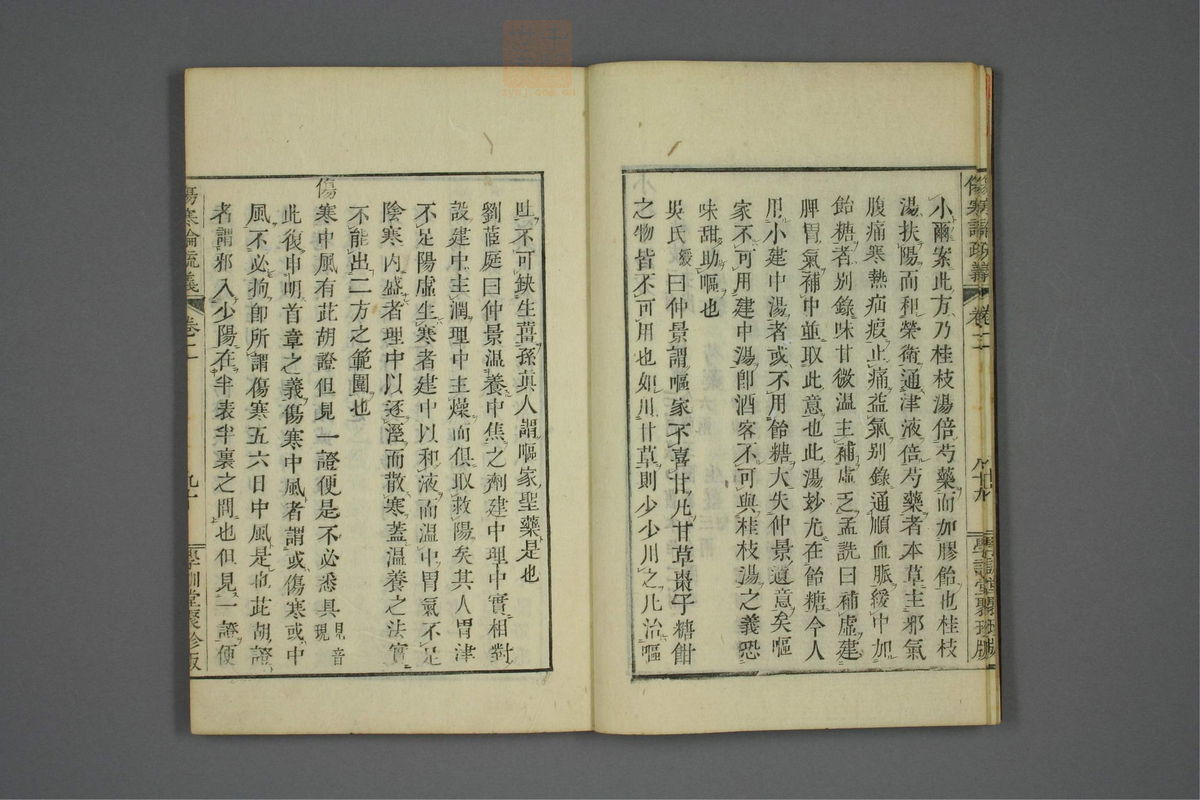 小爾案此方乃桂枝湯倍芍藥而加膠飴也桂枝
湯扶陽而和榮衛通津液倍芍藥者本草主邪氣
腹痛寒熱疝瘕止痛益氣別錄通順血脈緩中加
飴糖者別錄味甘微溫主補虛乏孟詵曰補虛建
脾胃氣補中並取此意也此湯妙尤在飴糖今人
用小建中湯者或不用飴糖大失仲景遺意矣嘔
家不可用建中湯卽酒客不可與桂枝湯之義恐
味甜助嘔也
吳氏綬曰仲景謂嘔家不喜甘凡甘草棗子糖餠
之物皆不可用也如用甘草則少少用之凡治嘔
傷寒論疏義 卷二
學訓堂聚珍版
吐不可缺生薑孫眞人謂嘔家聖藥是也
劉茝庭曰仲景溫養中焦之劑建中理中實相對
設建中主潤理中主燥而俱取救陽矣其人胃津
不足陽虛生寒者建中以和液而溫中胃氣不足
陰寒內盛者理中以逐溼而散寒蓋溫養之法實
不能出二方之範圍也
傷寒中風有茈胡證但見一證便是不必悉具見音現
此復申明首章之義傷寒中風者謂或傷寒或中
風不必拘卽所謂傷寒五六日中風是也茈胡證
者謂邪入少陽在半表半裏之間也但見一證便
傷寒論疏義 卷二
學訓堂聚珍版